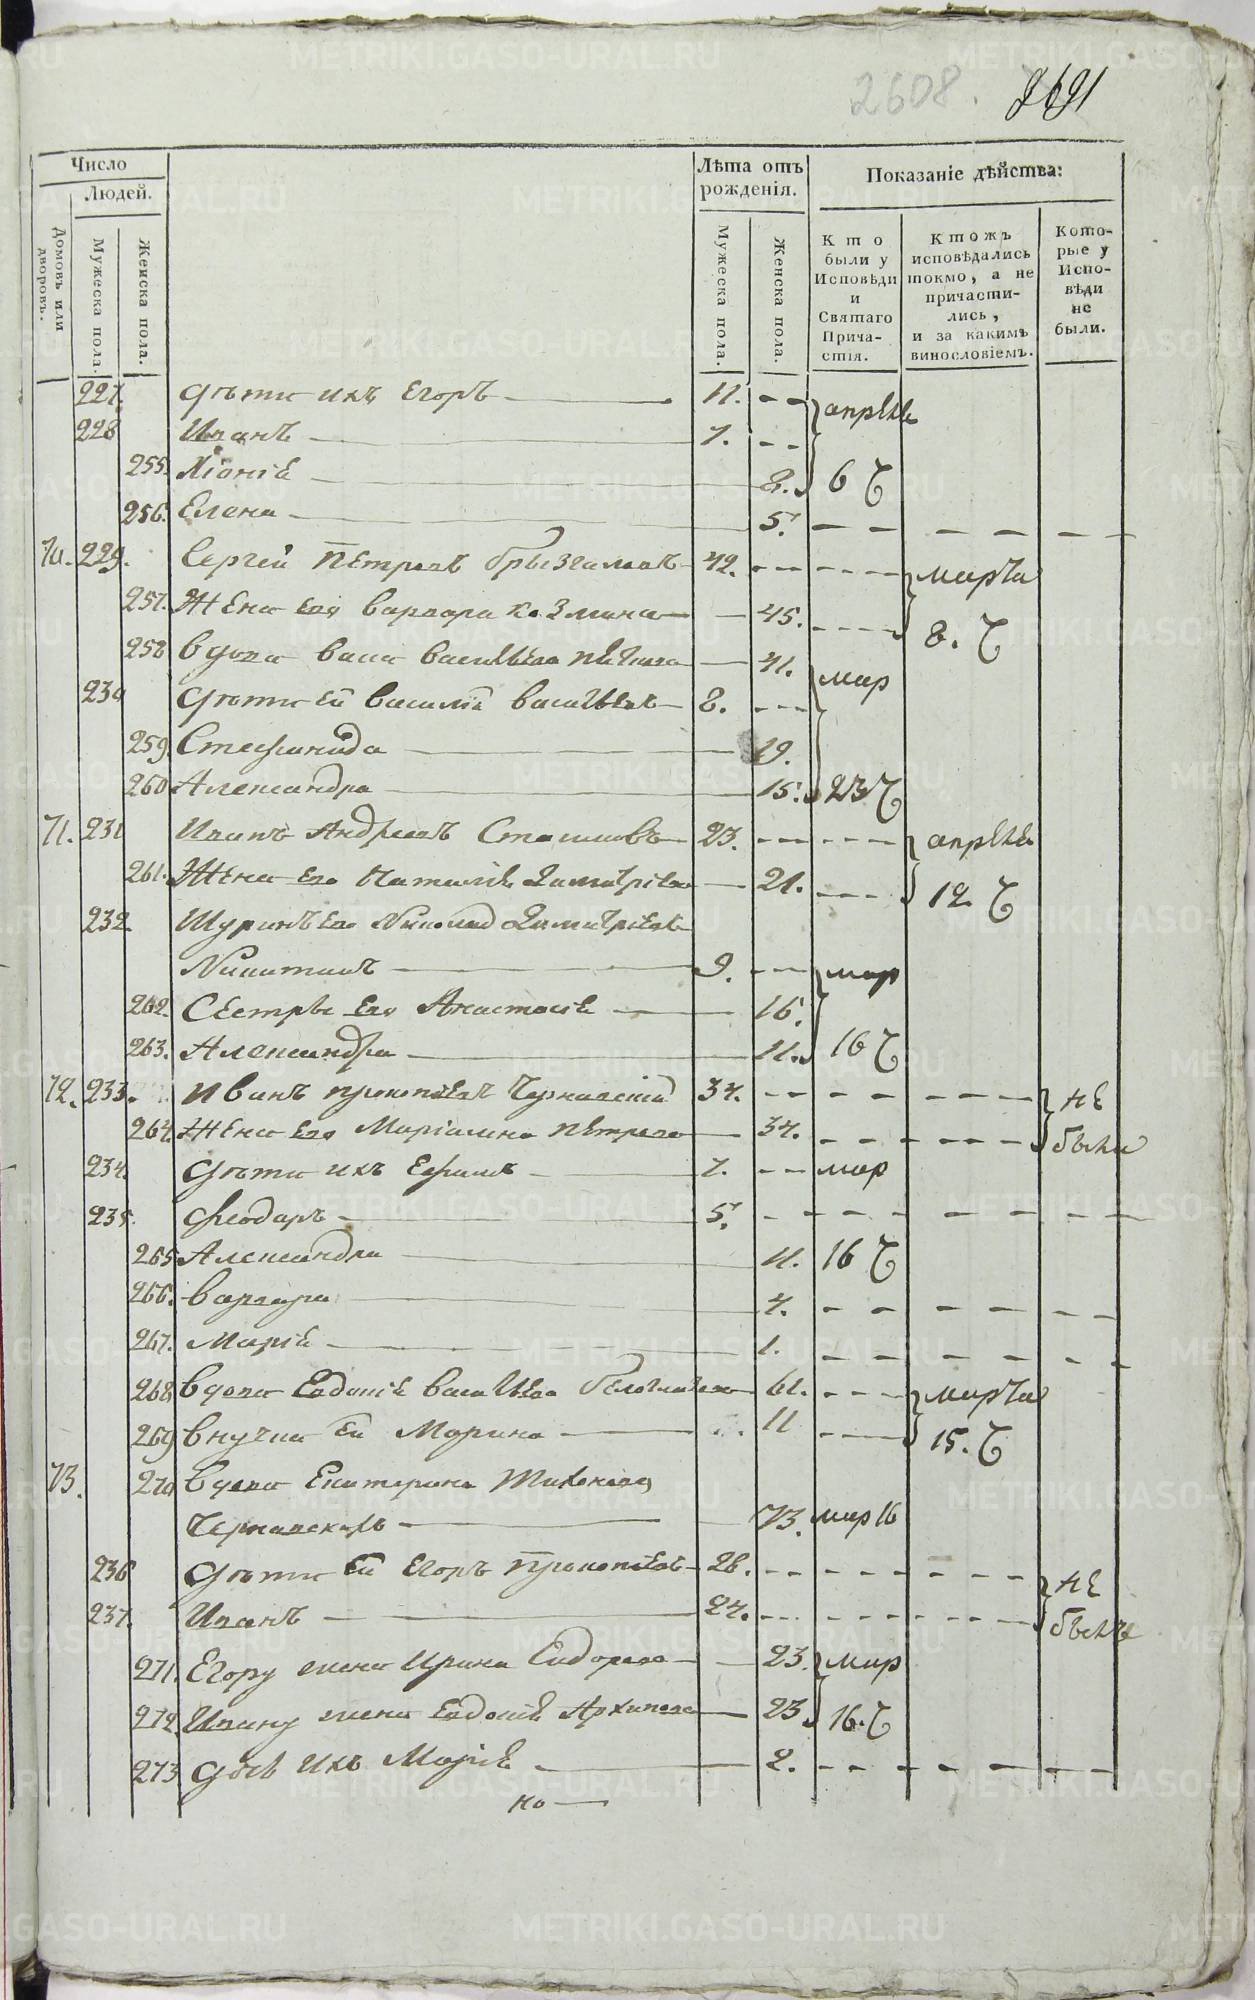 2608. 2691
Число
Людей.
Домовъ или дворовъ.
Мужеска пола.
Женска пола.
Лѣта отъ рожденія.
Мужеска пола.
Женска пола.
Показаніе дѣйства:
Кто были у Исповѣди и Святаго Причастія.
Ктожъ исповѣдались токмо, а не причастились, и за какимъ винословіемъ.
Которые у Исповѣди не были.
227. дѣти ихъ Егоръ 11. апрѣля
228 Иванъ 7.
255. 8. 6 Ч
256. Елена 5.
70. 229. Сергей Петровъ Брызгаловъ 42. марта
257. Жена его Варвара Козмина 45. 8. Ч
258 вдова Васильева 41. мар
230 дѣти ей Василій Васильевъ 8.
259. Стефанида 19.
260 Александра 15. 23 Ч
71. 231 Иванъ Андреевъ 23. апрѣля
261. Жена его Наталія Димитріева 21. 12. Ч
232. Шуринъ его Николай Димитріевъ
Никитинъ 9. мар
262. Сестры его Анастасія 16.
263. Александра 11. 16 Ч
72. 233. Иванъ Прокопіевъ Чернавскій 34. не
264. Жена его Маріамна Петрова 34. были
234. дѣти ихъ Ефимъ 7. мар
235. Феодоръ 5.
265 Александра 11. 16 Ч
266. Варвара 4.
267. Марія 1.
268 вдова Евдокія Васильева 61. марта
269 внучка ей Марина 11 15. Ч
73. 270 вдова Екатерина Тихонова
73. мар 16
236 дѣти ей Егоръ Прокопіевъ 28. не
237. Иванъ 24. были
271. Егору жена Ирина Сидорова 23. мар
272. Ивану жена Евдокія Архипова 23 16. Ч
273 дочь ихъ Марія 2.